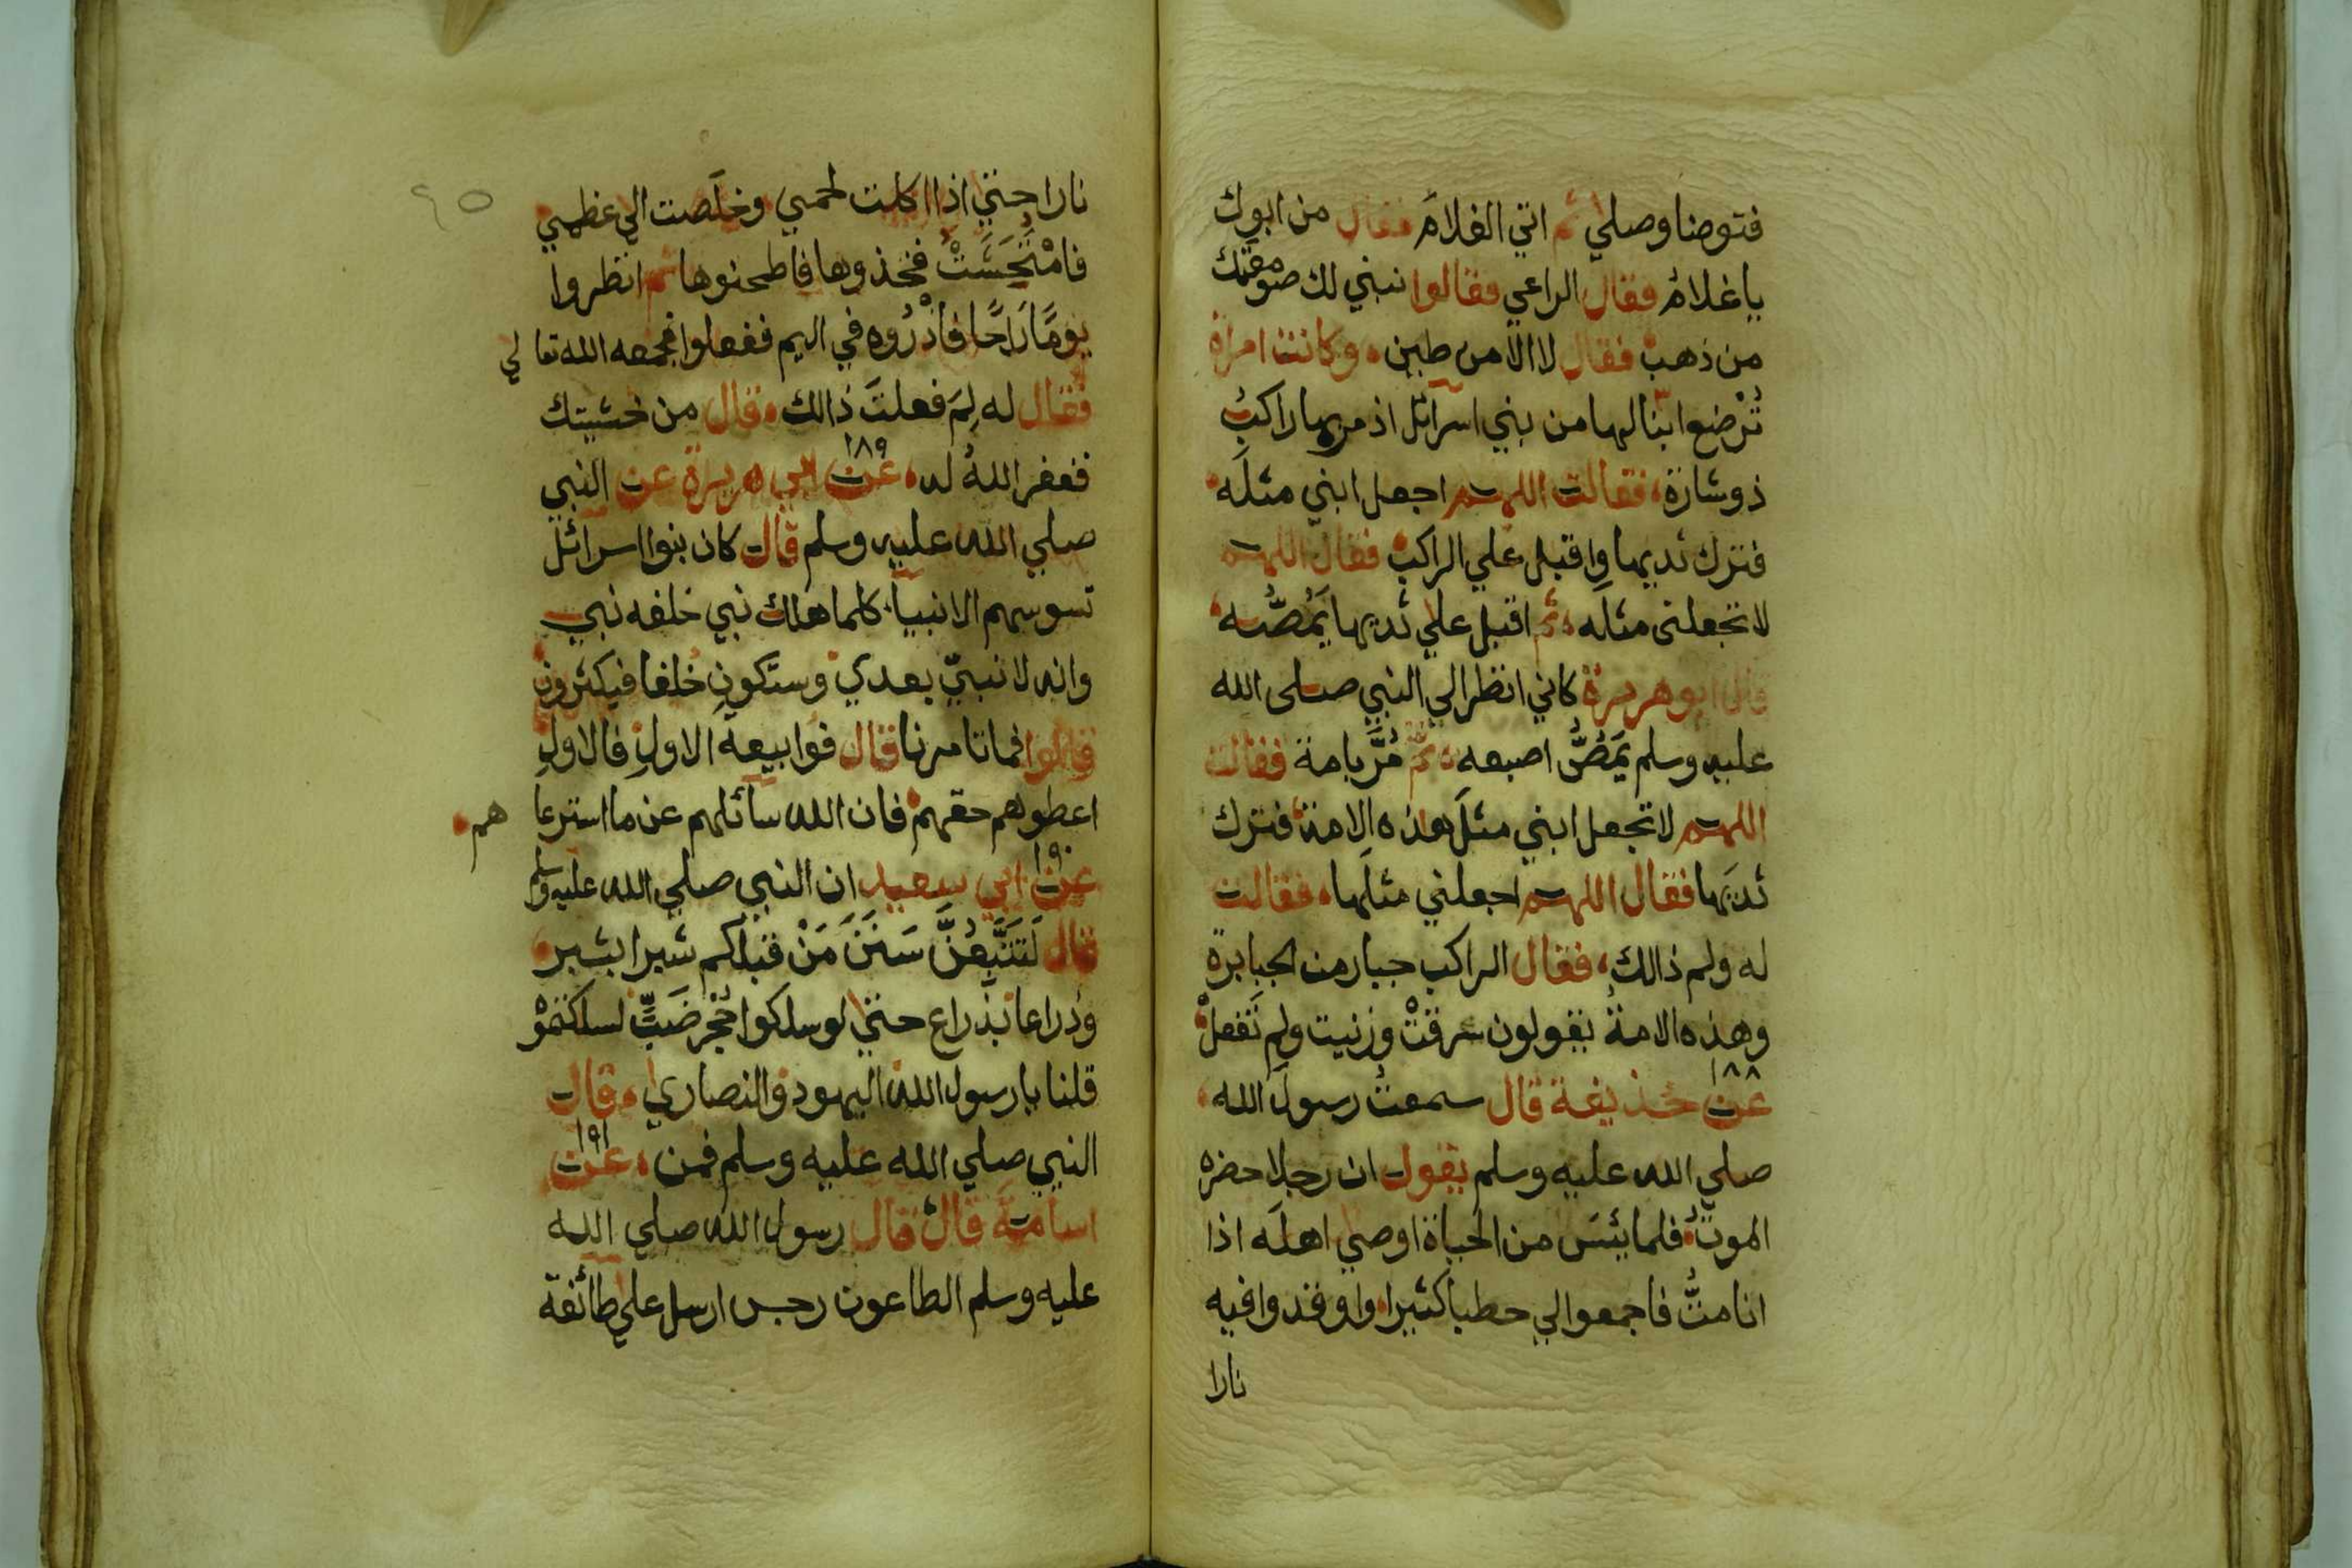 فتوضا وصلي ثم اتي الغلامَ فقال من ابوك
ياغلامُ فقال الراعي فقالوا نبني لك صومعتك
من ذهب فقال لا الا من طين وكانت امراة
تُرْضع ابنا لها من بني اسرائل اذ مر بها راكبُ
ذو شارة فقالت اللهم اجعل ابني مثلَه
فترك ثديها واقبل علي الراكب فقال اللهم
لا تجعلنى مثله ثم اقبل علي ثديها يَمُصُّه
قال ابو هريرة كاني انظر الي النبي صلى الله
عليه وسلم يَمَصُّ اصبعه ثم مُرَّ بامة فقالت
اللهم لا تجعل ابني مثلَ هذه الامة فترك
ثديَها فقال اللهم اجعلني مثلَها فقالت
له ولم ذالك فقال الراكب جبار من الجبابرة
وهذه الامةُ يقولون سرقتْ وزنيت ولم تَفعلْ
١٨٨
عن حذيفة قال سمعتُ رسولَ الله
صلي الله عليه وسلم يقول ان رجلا حضره
الموتُ فلما يئسَ من الحياة اوصي اهلَه اذا
انا متُّ فاجمعوا لي حطبا كثيرا واوقدوا فيه
نارا
٩٥
نارا حتي اذا اكلت لحمي وخلَصت الي عظمي
فامْتُحِشَتْ فخذوها فاطحنوها ثم انظروا
يومًا رَاحًا فاذْرُوه في اليم ففعلوا فجمعه الله تعالي
فقال له لِمَ فعلتَ ذالك قال من خشيتك
فغفر اللهُ له ١٨٩ عن ابي هريرة عن النبي
صلي الله عليه وسلم قال كان بنوا اسرائل
تسوسهم الانبياء كلما هلك نبي خلفه نبي
وانه لا نبيّ بعدي وستكون خلفا فيكثرون
قالوا فما تامرنا قال فوا بيعة الاولِ فالاولِ
اعطوهم حقهم فان الله سائلهم عن ما استرعاهم
١٩٠
عن ابي سعيد ان النبي صلي الله عليه وسلم
قال لَتَتَّبِعُنَّ سَنَنَ مَنْ قبلكم شبرا بشبر
وذراعا بذراع حتي لو سلكوا جُحْرَ ضَبٍّ لسلكتموْ
قلنا يارسول الله اليهود والنصاري قال
النبي صلي الله عليه وسلم فمن ١٩١ عن
اسامة قال قال رسول الله صلي الله
عليه وسلم الطاعون رجس ارسل علي طائفة